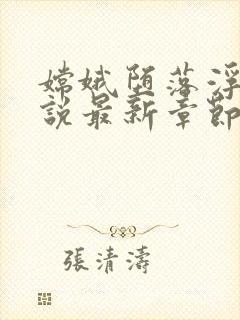 嫦娥堕落浮
說最新章節
張清濤